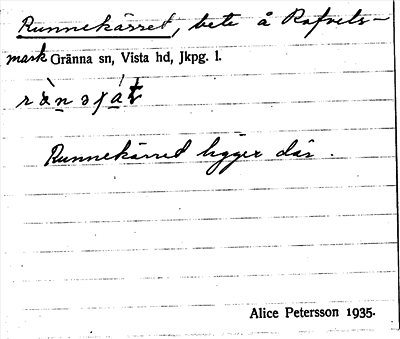 Runnekärret, bete å Rafvels-
mark Gränna sn, Vista hd, Jkpg. l.
Runnekärret ligger där.
Alice Petersson 1935.